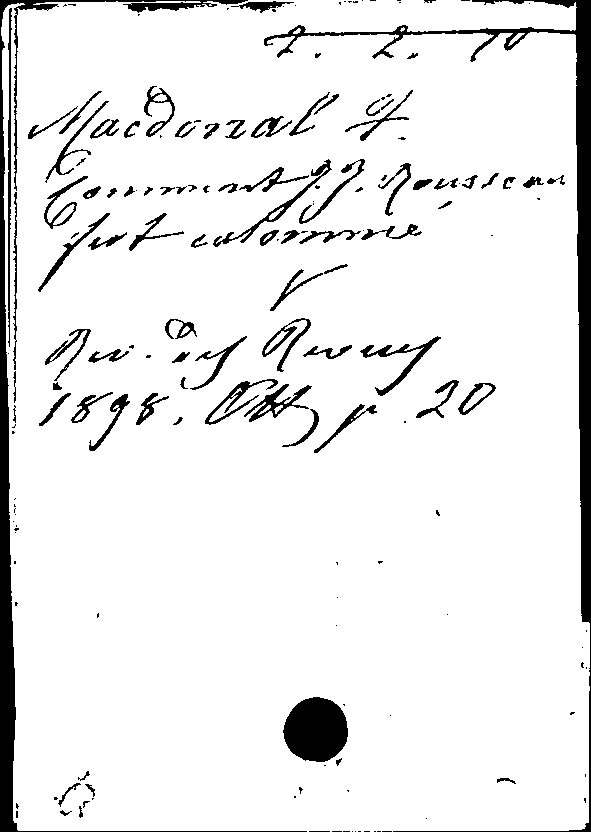 2. 2. 10
Macdonald F.
Comment J. J. Rousseau
fut calomnié
V
Rev. des Revues
1898. Ott p. 20